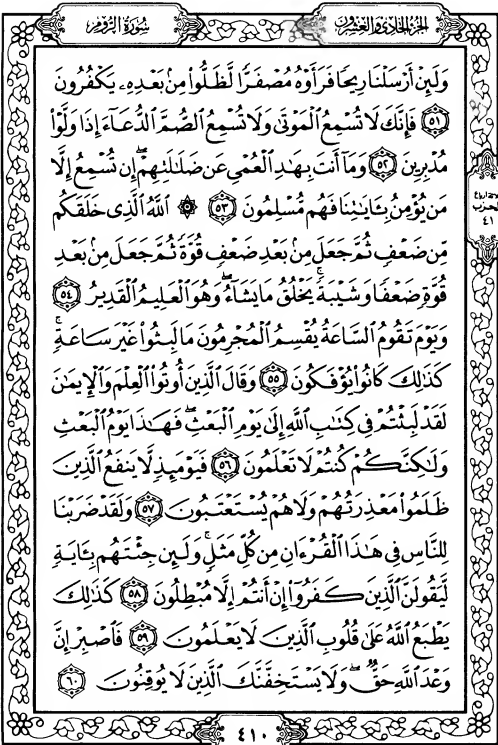 الجزء الحادي والعشرون
سورة الروم
وَلَئِنْ أَرْسَلْنَا رِيحًا فَرَأَوْهُ مُصْفَرًّا لَّظَلُّوا۟ مِنۢ بَعْدِهِۦ يَكْفُرُونَ
۝٥١ فَإِنَّكَ لَا تُسْمِعُ ٱلْمَوْتَىٰ وَلَا تُسْمِعُ ٱلصُّمَّ ٱلدُّعَآءَ إِذَا وَلَّوْا۟
مُدْبِرِينَ ۝٥٢ وَمَآ أَنتَ بِهَـٰدِ ٱلْعُمْىِ عَن ضَلَـٰلَتِهِمْ ۖ إِن تُسْمِعُ إِلَّا
مَن يُؤْمِنُ بِـَٔايَـٰتِنَا فَهُم مُّسْلِمُونَ ۝٥٣ ۞ ٱللَّهُ ٱلَّذِى خَلَقَكُم
مِّن ضَعْفٍ ثُمَّ جَعَلَ مِنۢ بَعْدِ ضَعْفٍ قُوَّةً ثُمَّ جَعَلَ مِنۢ بَعْدِ
قُوَّةٍ ضَعْفًا وَشَيْبَةً ۚ يَخْلُقُ مَا يَشَآءُ ۖ وَهُوَ ٱلْعَلِيمُ ٱلْقَدِيرُ ۝٥٤
وَيَوْمَ تَقُومُ ٱلسَّاعَةُ يُقْسِمُ ٱلْمُجْرِمُونَ مَا لَبِثُوا۟ غَيْرَ سَاعَةٍ ۚ
كَذَٰلِكَ كَانُوا۟ يُؤْفَكُونَ ۝٥٥ وَقَالَ ٱلَّذِينَ أُوتُوا۟ ٱلْعِلْمَ وَٱلْإِيمَـٰنَ
لَقَدْ لَبِثْتُمْ فِى كِتَـٰبِ ٱللَّهِ إِلَىٰ يَوْمِ ٱلْبَعْثِ ۖ فَهَـٰذَا يَوْمُ ٱلْبَعْثِ
وَلَـٰكِنَّكُمْ كُنتُمْ لَا تَعْلَمُونَ ۝٥٦ فَيَوْمَئِذٍ لَّا يَنفَعُ ٱلَّذِينَ
ظَلَمُوا۟ مَعْذِرَتُهُمْ وَلَا هُمْ يُسْتَعْتَبُونَ ۝٥٧ وَلَقَدْ ضَرَبْنَا
لِلنَّاسِ فِى هَـٰذَا ٱلْقُرْءَانِ مِن كُلِّ مَثَلٍ ۚ وَلَئِن جِئْتَهُم بِـَٔايَةٍ
لَّيَقُولَنَّ ٱلَّذِينَ كَفَرُوٓا۟ إِنْ أَنتُمْ إِلَّا مُبْطِلُونَ ۝٥٨ كَذَٰلِكَ
يَطْبَعُ ٱللَّهُ عَلَىٰ قُلُوبِ ٱلَّذِينَ لَا يَعْلَمُونَ ۝٥٩ فَٱصْبِرْ إِنَّ
وَعْدَ ٱللَّهِ حَقٌّ ۖ وَلَا يَسْتَخِفَّنَّكَ ٱلَّذِينَ لَا يُوقِنُونَ ۝٦٠
٤١
٤١٠